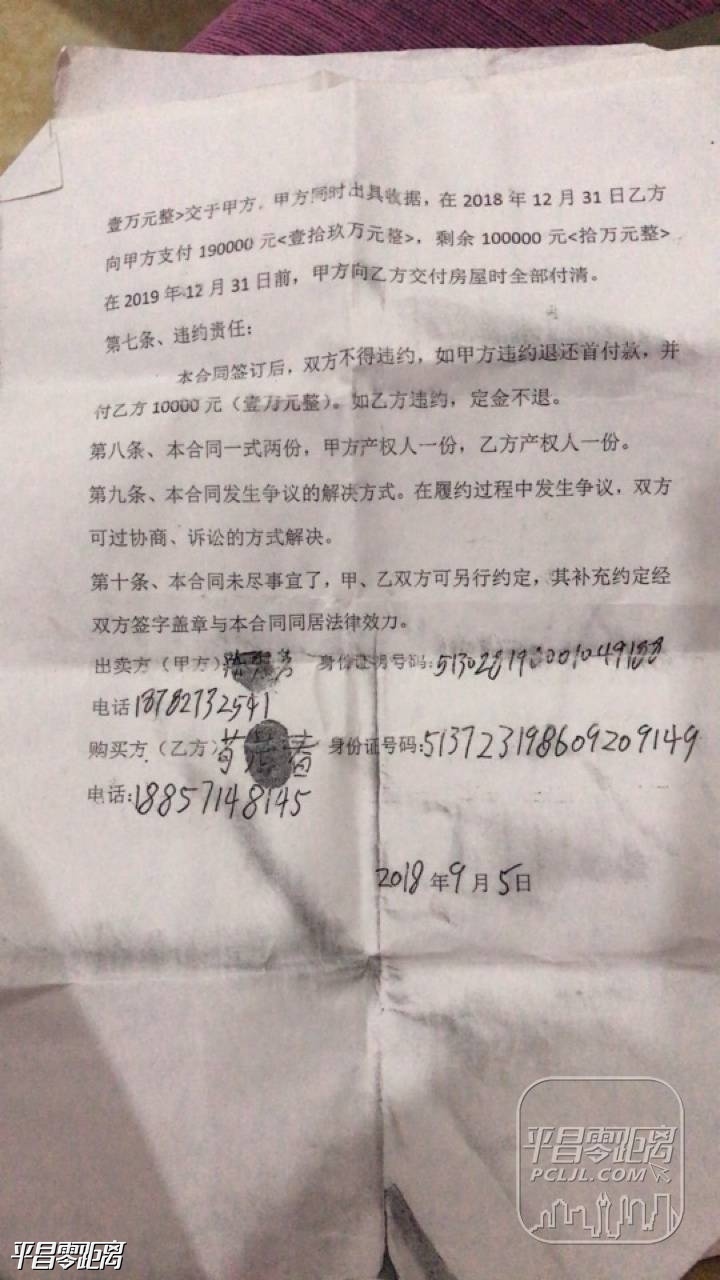 壹万元整>交于甲方。甲方同时出具收据，在 2018 年 12 月 31 日乙方
向甲方支付 190000 元<壹拾玖万元整>，剩余 100000 元<拾万元整>
在 2019 年 12 月 31 日前，甲方向乙方交付房屋时全部付清。
第七条、违约责任：
本合同签订后，双方不得违约，如甲方违约退还首付款，并
付乙方 10000 元（壹万元整）。如乙方违约，定金不退。
第八条、本合同一式两份，甲方产权人一份，乙方产权人一份。
第九条、本合同发生争议的解决方式。在履约过程中发生争议，双方
可过协商、诉讼的方式解决。
第十条、本合同未尽事宜了，甲、乙双方可另行约定，其补充约定经
双方签字盖章与本合同同居法律效力。
出卖方（甲方） 身份证明号码:
电话 18782732541
购买方（乙方） 身份证号码:513723198609209149
电话:18857148145
2018 年 9 月 5 日
平昌零距离
PCLJL.COM
平昌零距离